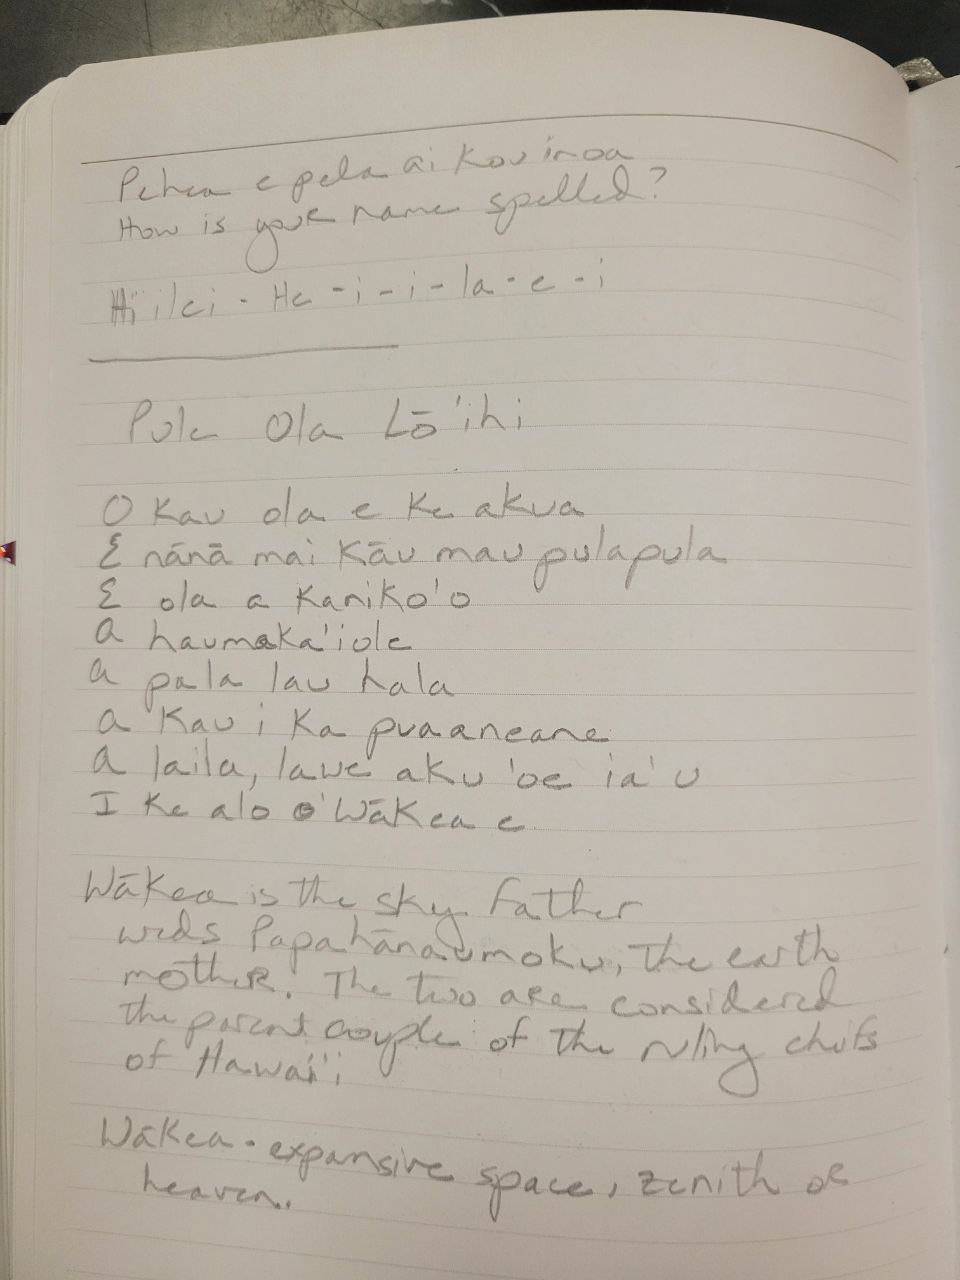 Pehea e pela ai kou inoa
How is your name spelled?
Hiilei - He - i - i - la - e - i
Pule Ola Lō'ihi
O Kau ola e Ke akua
E nānā mai Kāu mau pulapula
E ola a Kaniko'o
a haumaka'iole
a pala lau hala
a Kau i Ka puaaneane
a laila, lawe aku 'oe ia'u
I Ke alo o Wākea e
Wākea is the sky father
weds Papahānaumoku, the earth
mother. The two are considered
the parent couple of the ruling chiefs
of Hawai'i
Wākea - expansive space, zenith or
heaven.